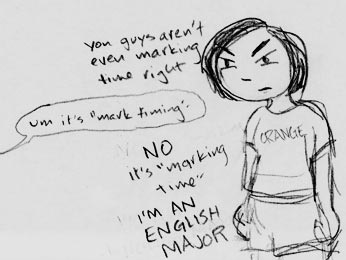 you guys aren't
even marking
time right
um it's "mark timing"
ORANGE
NO
it's "marking
time"
I'M AN
ENGLISH
MAJOR